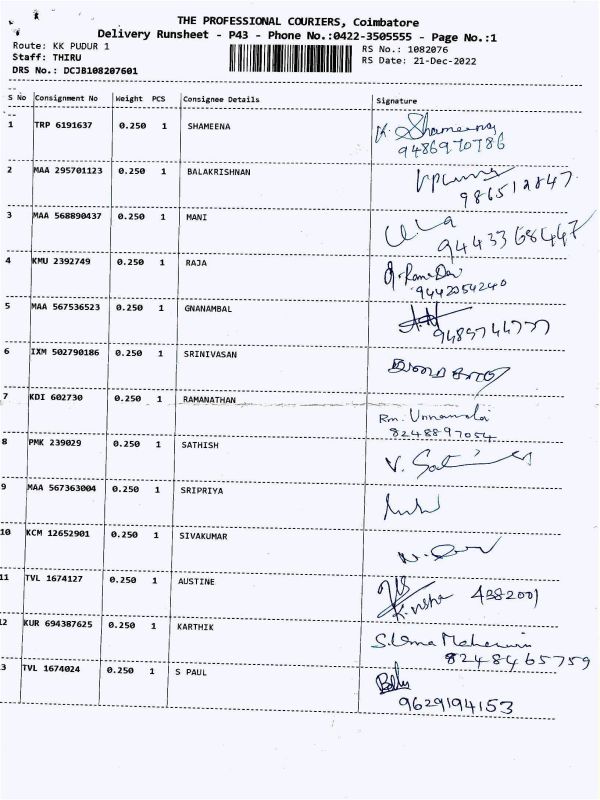 THE PROFESSIONAL COURIERS, Coimbatore
Delivery Runsheet - P43 - Phone No.:0422-3505555 - Page No.:1
Route: KK PUDUR 1 RS No.: 1082076
Staff: THIRU RS Date: 21-Dec-2022
DRS No.: DCJB108207601
S No Consignment No Weight PCS Consignee Details Signature
1 TRP 6191637 0.250 1 SHAMEENA K. Shameena
9486970786
2 MAA 295701123 0.250 1 BALAKRISHNAN
986512847
3 MAA 568890437 0.250 1 MANI
9443368447
4 KMU 2392749 0.250 1 RAJA
9442054240
5 MAA 567536523 0.250 1 GNANAMBAL
6 IXM 502790186 0.250 1 SRINIVASAN
7 KDI 602730 0.250 1 RAMANATHAN Rm. Unnamalai
8248897054
8 PMK 239029 0.250 1 SATHISH V.
9 MAA 567363004 0.250 1 SRIPRIYA
10 KCM 12652901 0.250 1 SIVAKUMAR
11 TVL 1674127 0.250 1 AUSTINE 4382001
12 KUR 694387625 0.250 1 KARTHIK S. Uma Maheswari
8248465759
3 TVL 1674024 0.250 1 S PAUL
9629194153